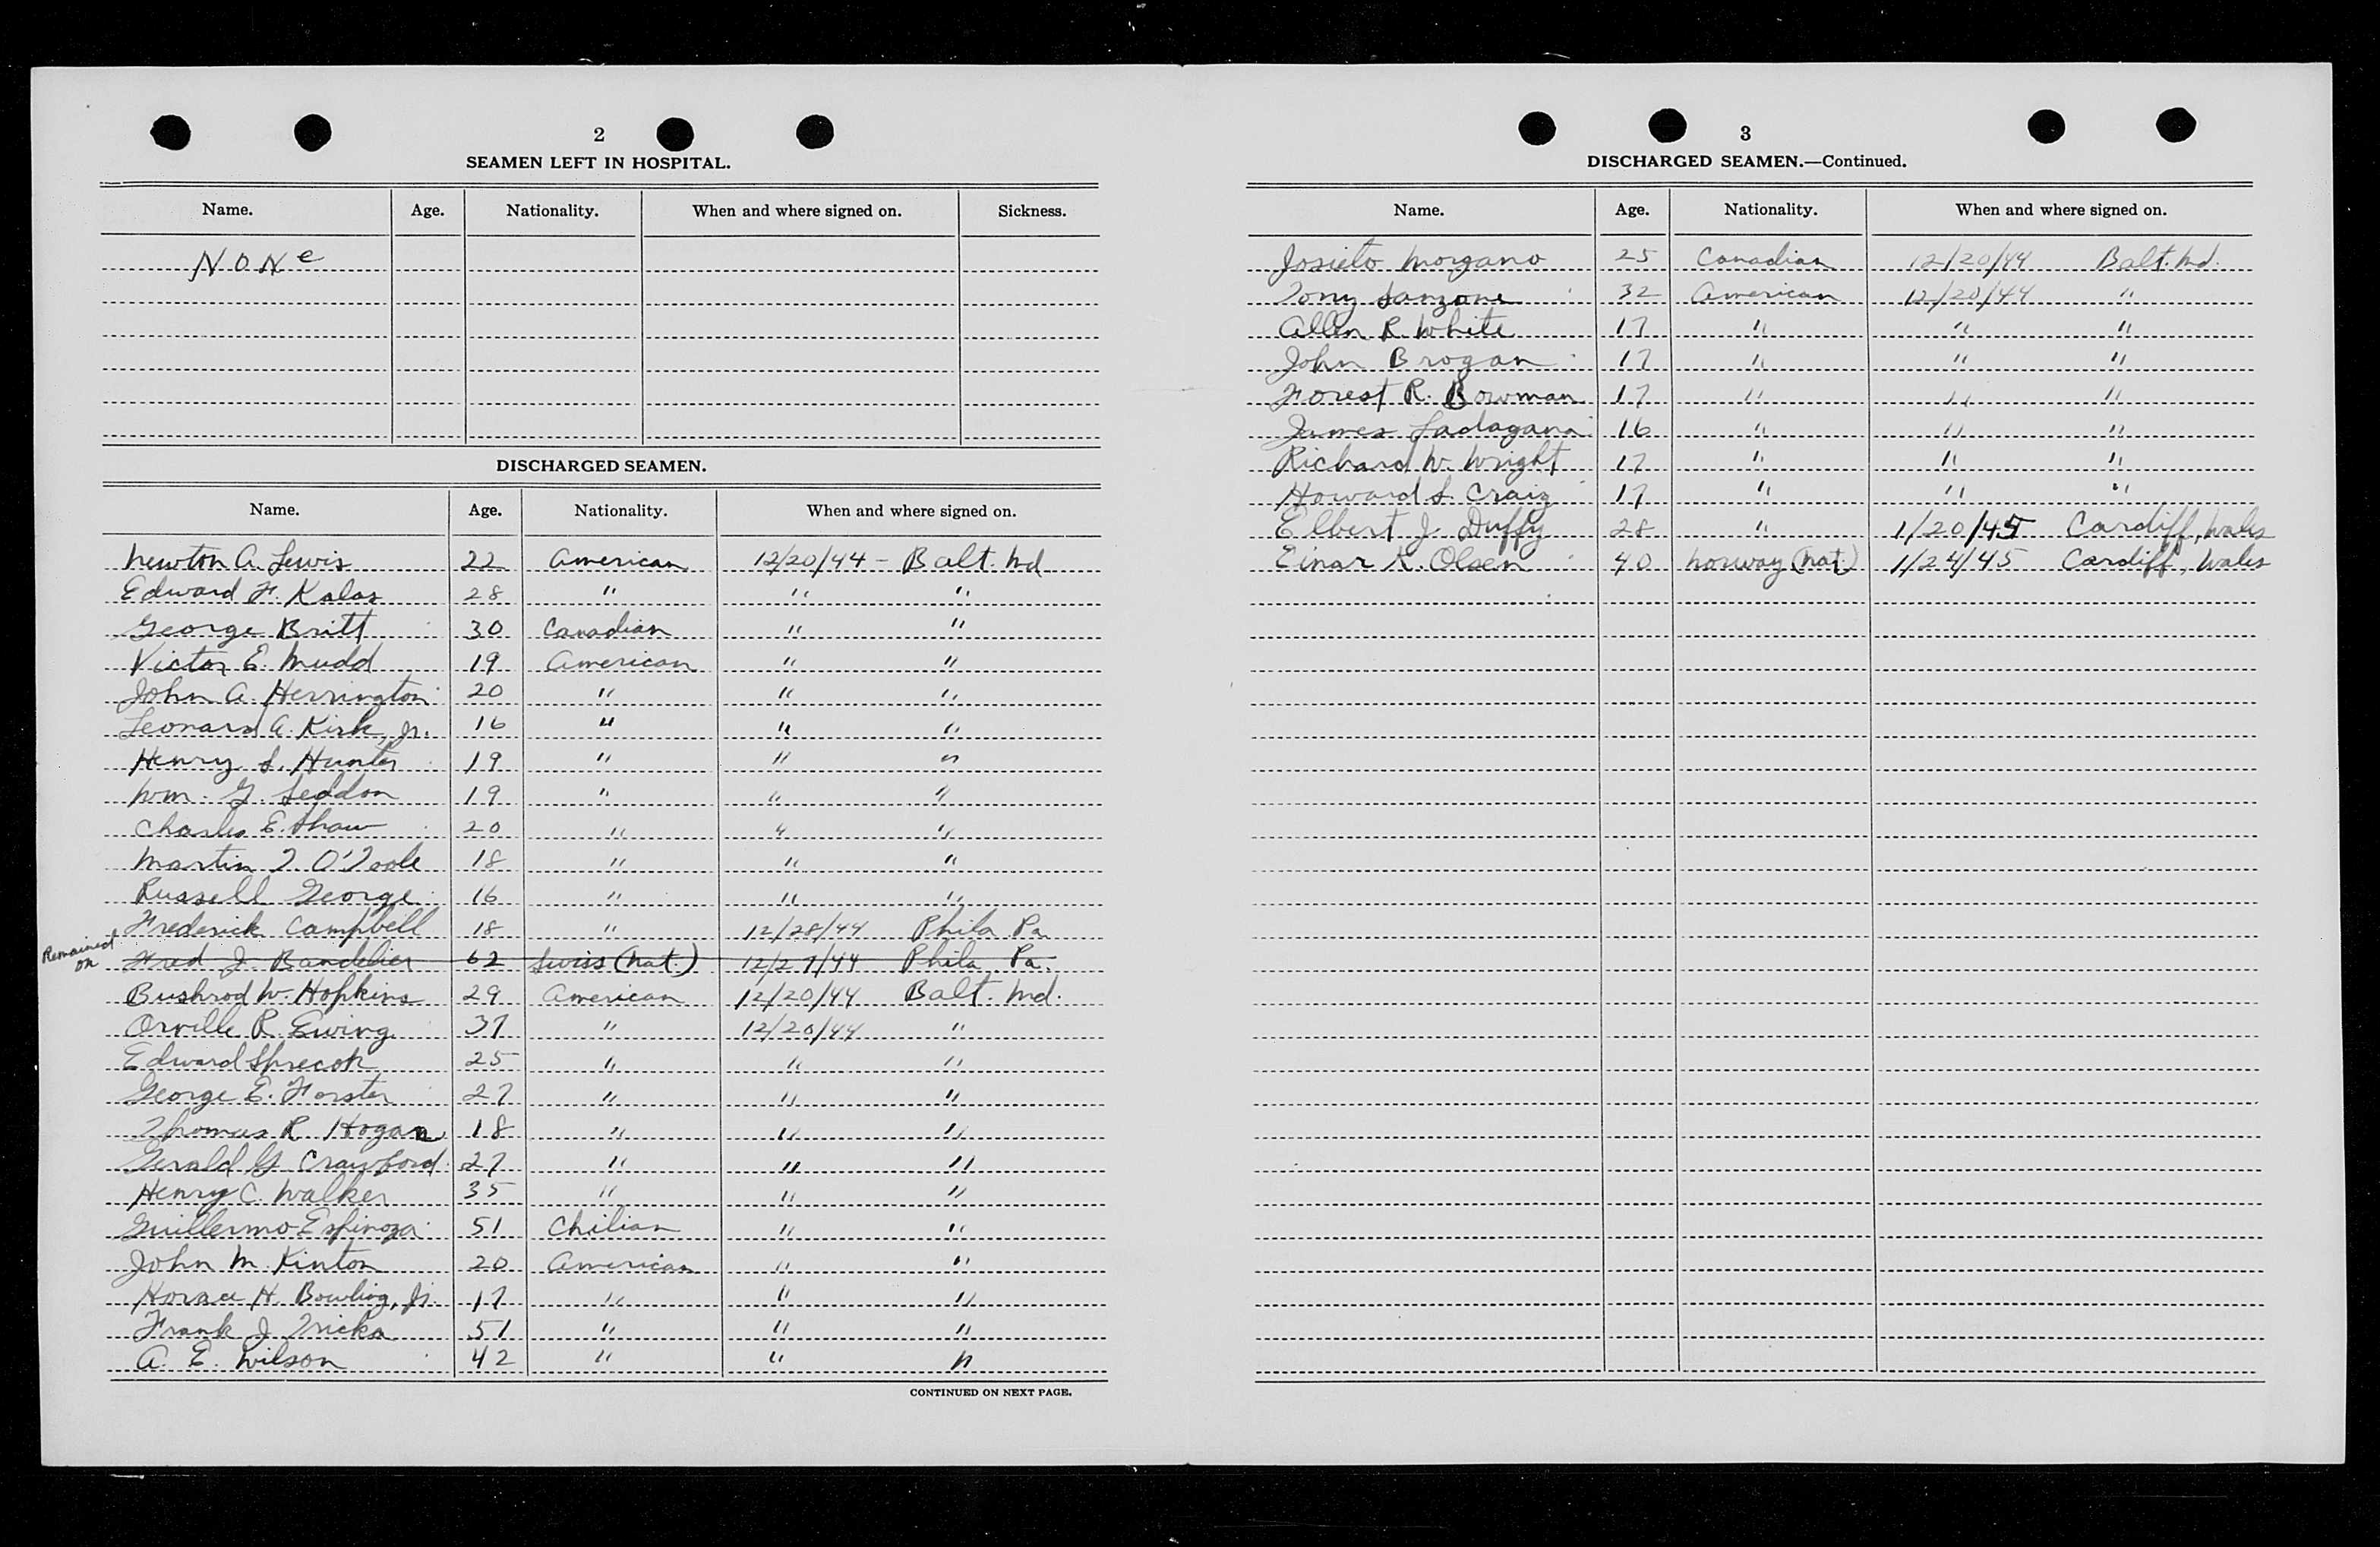 2
SEAMEN LEFT IN HOSPITAL.
Name. Age. Nationality. When and where signed on. Sickness.
None
DISCHARGED SEAMEN.
Name. Age. Nationality. When and where signed on.
Newton A. Lewis 22 American 12/20/44 - Balt. Md
Edward F. Kalas 28 " " "
George Britt 30 Canadian " "
Victor E. Mudd 19 American " "
John A. Herrington 20 " " "
Leonard A. Kirk, Jr. 16 " " "
Henry L. Hunter 19 " " "
Wm. G. Seddon 19 " " "
Charles E. Shaw 20 " " "
Martin T O'Toole 18 " " "
Russell George 16 " " "
Frederick Campbell 18 " 12/28/44 Phila Pa
Remained on
Fred J. Bandelier 62 Swiss (Nat.) 12/27/44 Phila Pa.
Bushrod W. Hopkins 29 American 12/20/44 Balt. Md.
Orville R. Ewing 37 " 12/20/44 "
Edward 25 " " "
George E. Forster 27 " " "
Thomas R Hogan 18 " " "
Gerald G Crawford 27 " " "
Henry C. Walker 35 " " "
Guillermo Espinoza 51 Chilian " "
John M. Kinton 20 American " "
Horace H. Bowling, Jr. 17 " " "
Frank J. Tricka 51 " " "
A. E. Wilson 42 " " "
CONTINUED ON NEXT PAGE.
3
DISCHARGED SEAMEN.—Continued.
Name. Age. Nationality. When and where signed on.
Morgano 25 Canadian 12/20/44 Balt. Md.
Tony Sanzone 32 American 12/20/44 "
Allen R. White 17 " " "
John Brogan 17 " " "
Forest R. Bowman 17 " " "
James 16 " " "
Richard W. Wright 17 " " "
Howard L. Craig 17 " " "
Elbert J. Duffy 28 " 1/20/45 Cardiff, Wales
Einar K. Olsen 40 Norway (Nat.) 1/24/45 Cardiff, Wales